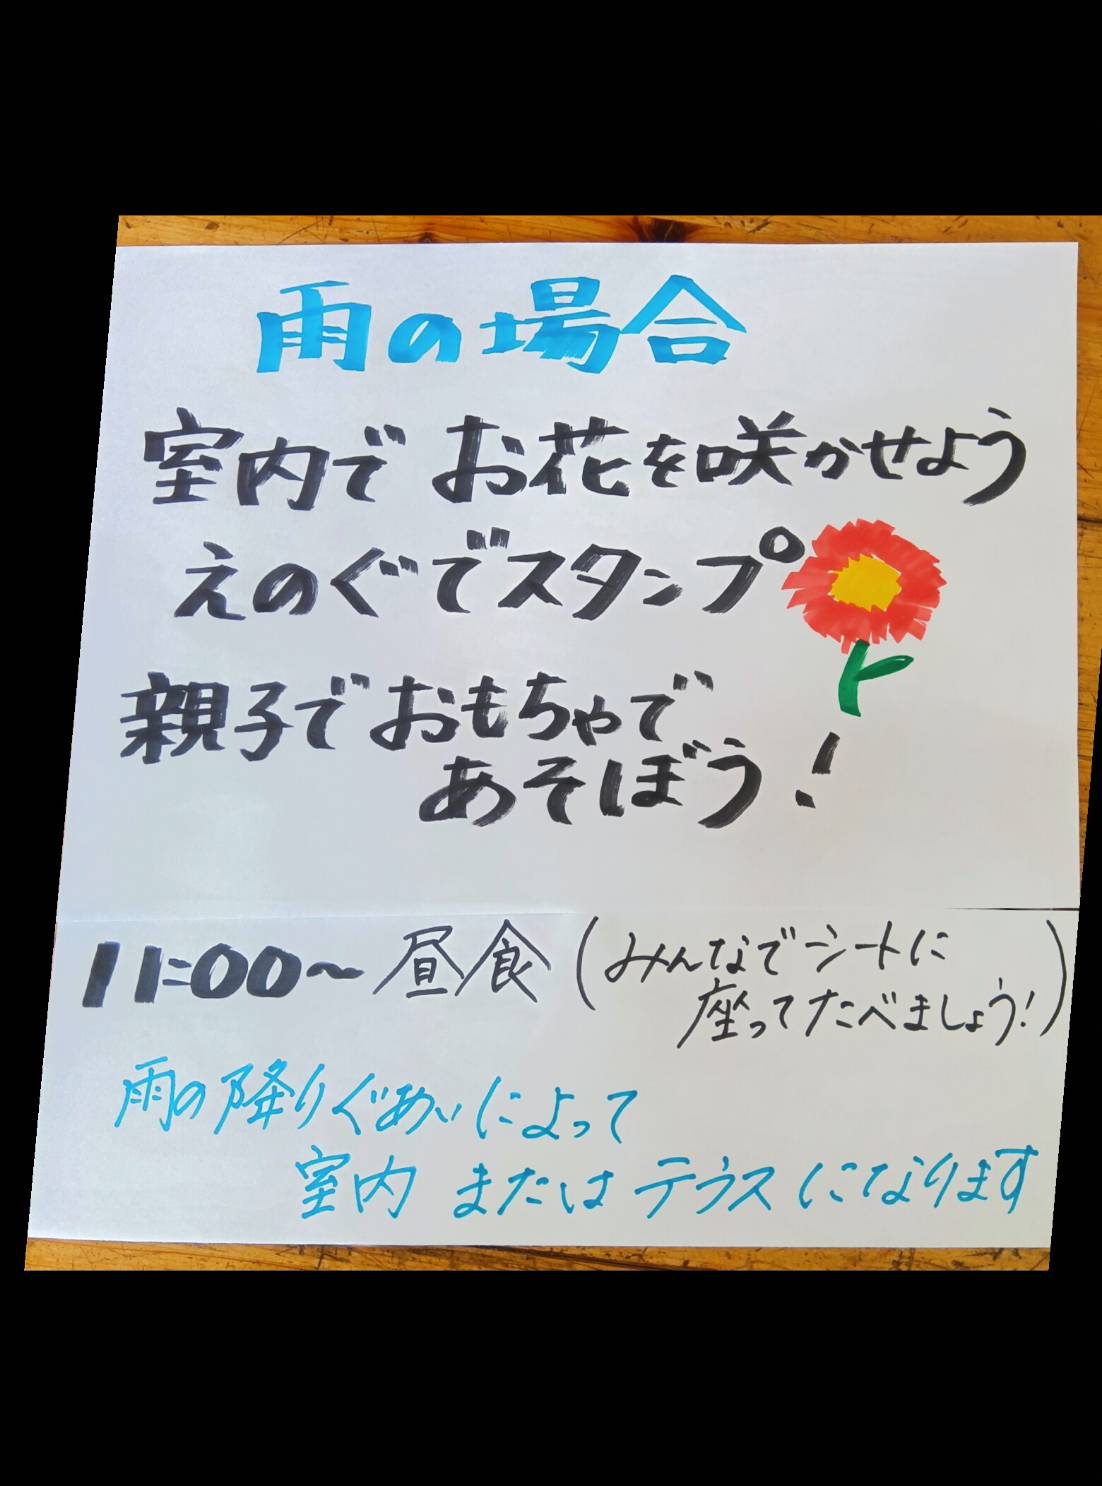 雨の場合
室内でお花を咲かせよう
えのぐでスタンプ
親子でおもちゃで
あそぼう!
11:00～昼食(みんなでシートに
座ってたべましょう!)
雨の降りぐあいによって
室内 または テラスになります